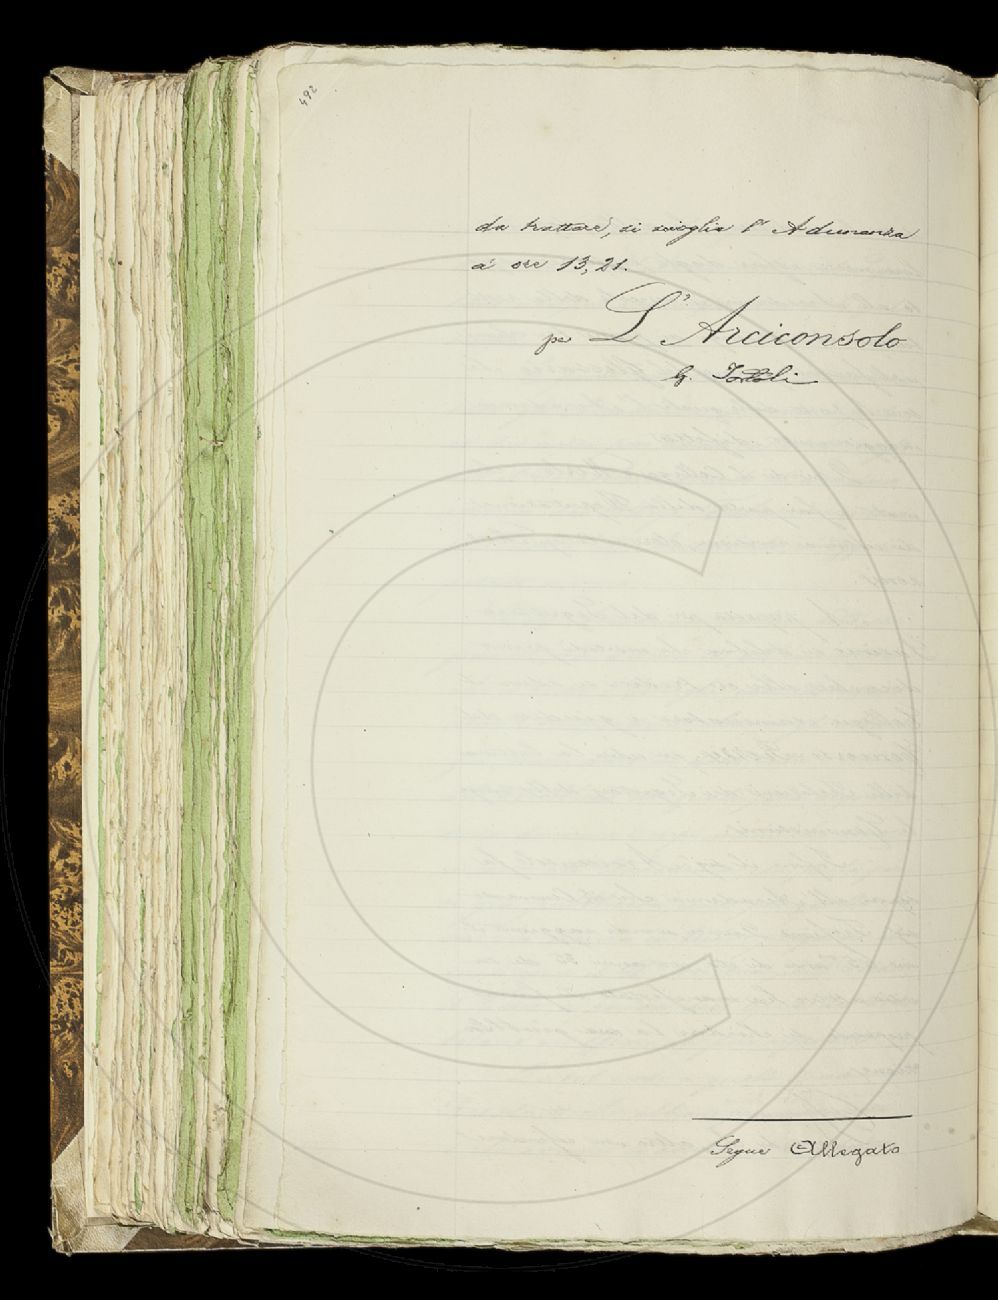 492
da trattare, si scioglie l'Adunanza
a ore 13,21.
pe L'Arciconsolo
G. Tortoli
Segue Allegato